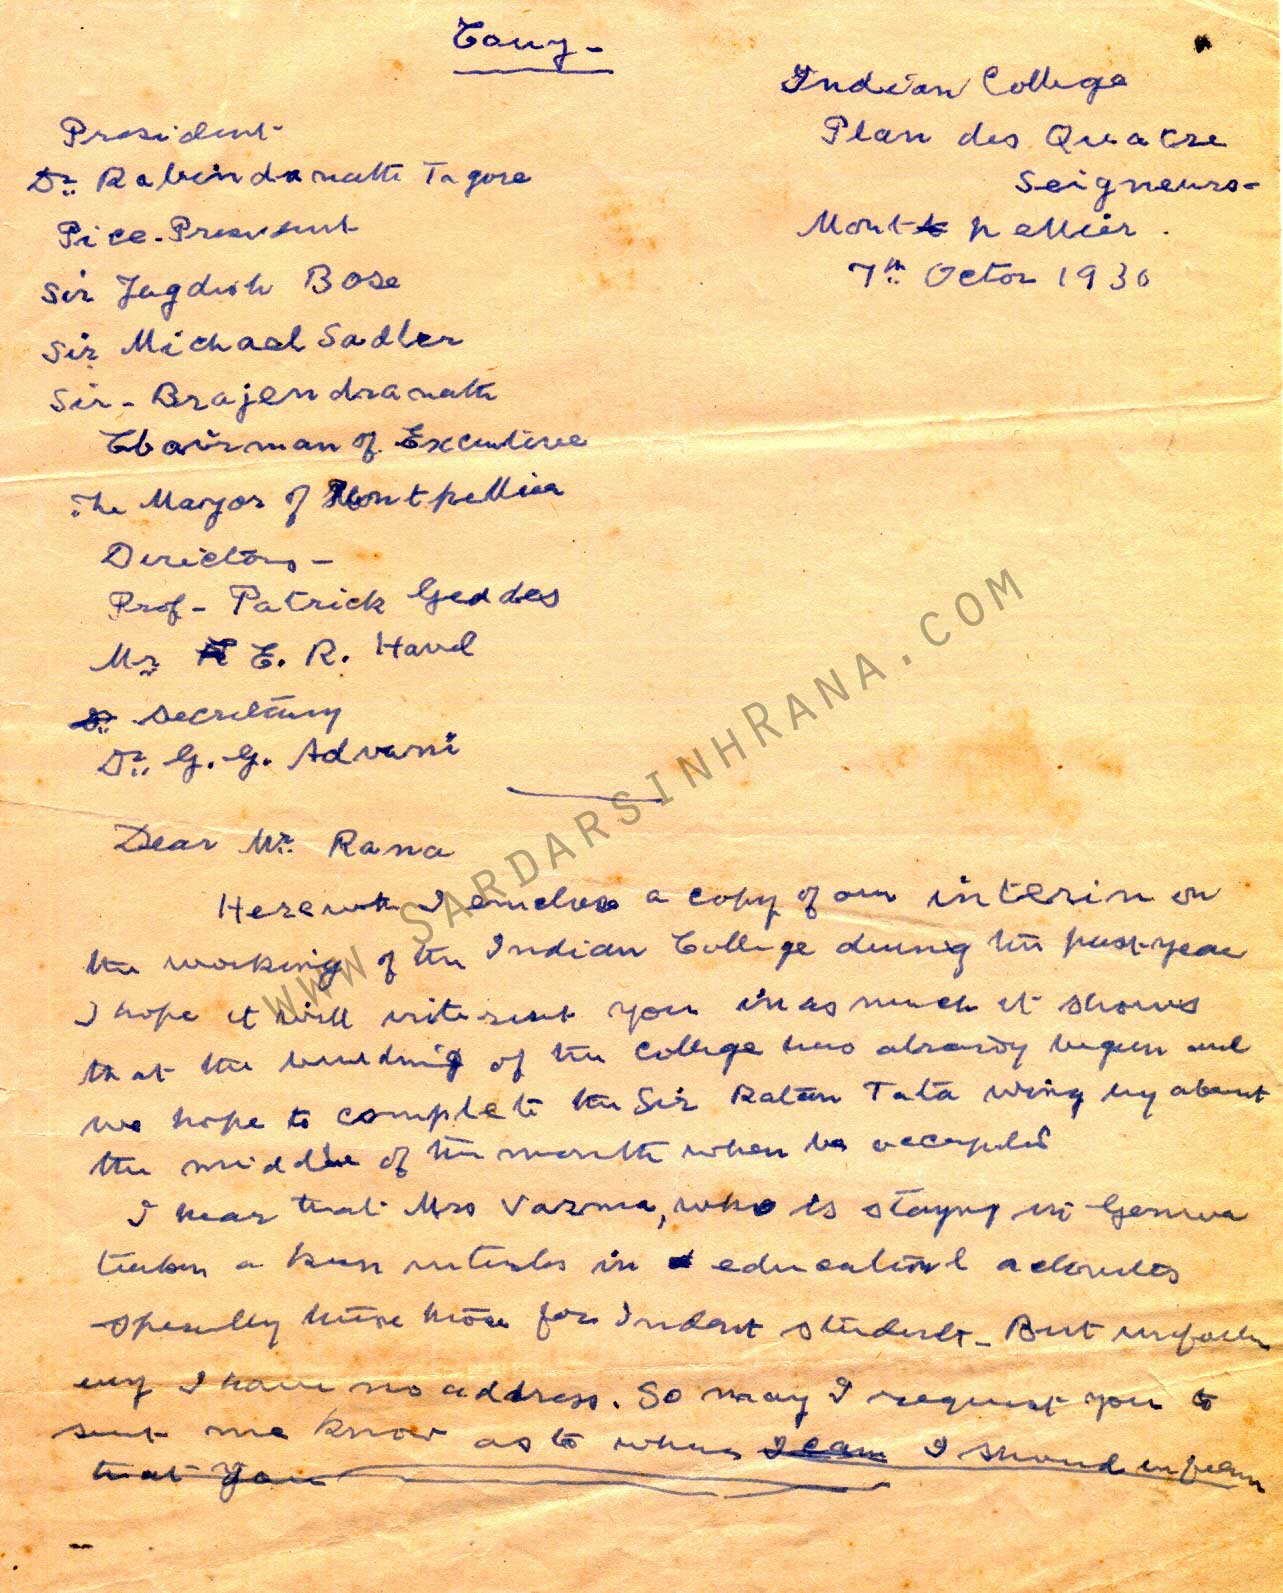 Copy -
Indian College
Plan des Quatre
Seigneurs -
Montpellier.
7th Octor 1930
President
Dr. Rabindranath Tagore
Vice-President
Sir Jagdish Bose
Sir Michael Sadler
Sir - Brajendranath
Chairman of Executive
The Mayor of Montpellier
Directors -
Prof - Patrick Geddes
Mr E. R. Havel
Secretary
Dr. G. G. Advani
Dear Mr. Rana
Herewith I enclose a copy of our interim on
the working of the Indian College during the past year
I hope it will interest you in as much it shows
that the building of the College has already begun and
we hope to complete the Sir Ratan Tata wing by about
the middle of the month when be occupied
I hear that Mrs Varma, who is staying in Geneva
taken a keen interest in educational activities
specially those for Indian students - But unfortun
I have no address. So may I request you to
me know as to where I can I should inform
that you
WWW.SARDARSINHRANA.COM